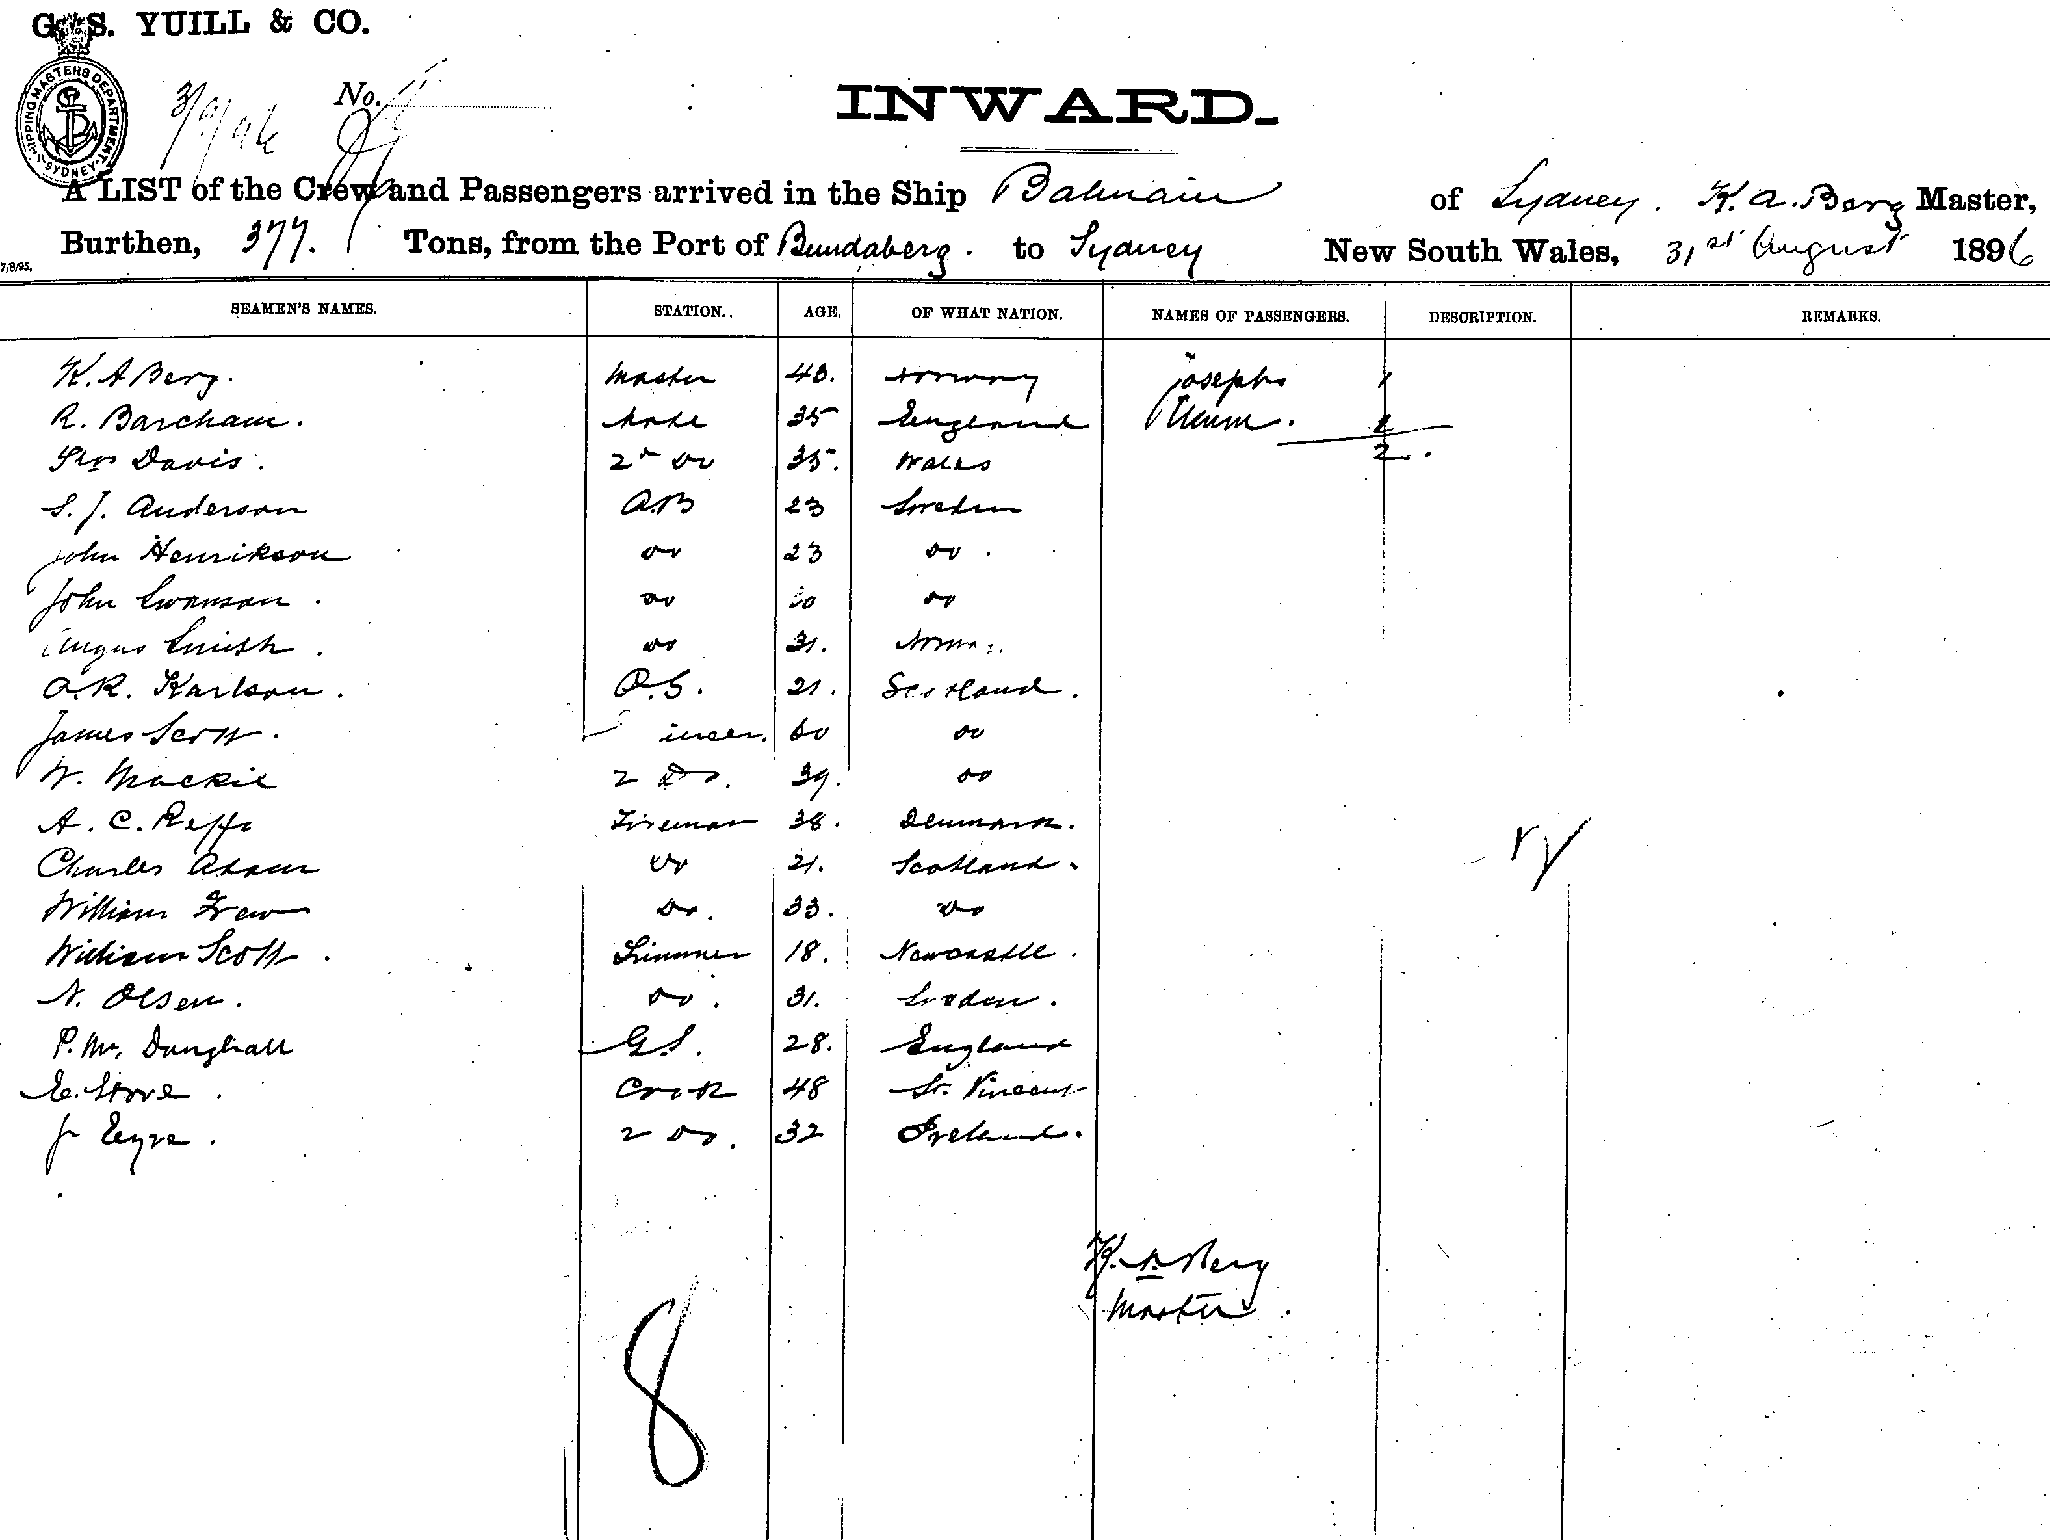 G. S. YUILL & CO.
SHIPPING MASTERS DEPARTMENT. SYDNEY.
3/9/96 No.
INWARD.
A LIST of the Crew and Passengers arrived in the Ship Balmain of Sydney. K. A. Berg Master,
Burthen, 377. Tons, from the Port of Bundaberg. to Sydney New South Wales, 31st August 1896
7/8/95.
SEAMEN'S NAMES. STATION. AGE. OF WHAT NATION. NAMES OF PASSENGERS. DESCRIPTION. REMARKS.
K. A Berg. Master 40. Norway Josephs 1
R. Barcham. Mate 35 England 1
Thos Davis. 2nd Do 35. Wales 2.
S. J. Anderson A.B 23 Sweden
John Henrikson Do 23 Do.
John Swanson. Do Do
Angus Smith. Do 31.
A. R. Karlson. O.S. 21. Scotland.
James Scott. 60 Do
W. Mackie 2 Do. 39. Do
A. C. Fireman 38. Denmark.
Charles Adam Do 21. Scotland.
William Frew Do. 33. Do
William Scott. Trimmer 18. Newcastle.
N. Olsen. Do. 31.
P. Mc. G.S. 28. England
Cook 48 St. Vincent
J. Eyre. 2 Do. 32 Ireland.
K. A. Berg
Master.
8